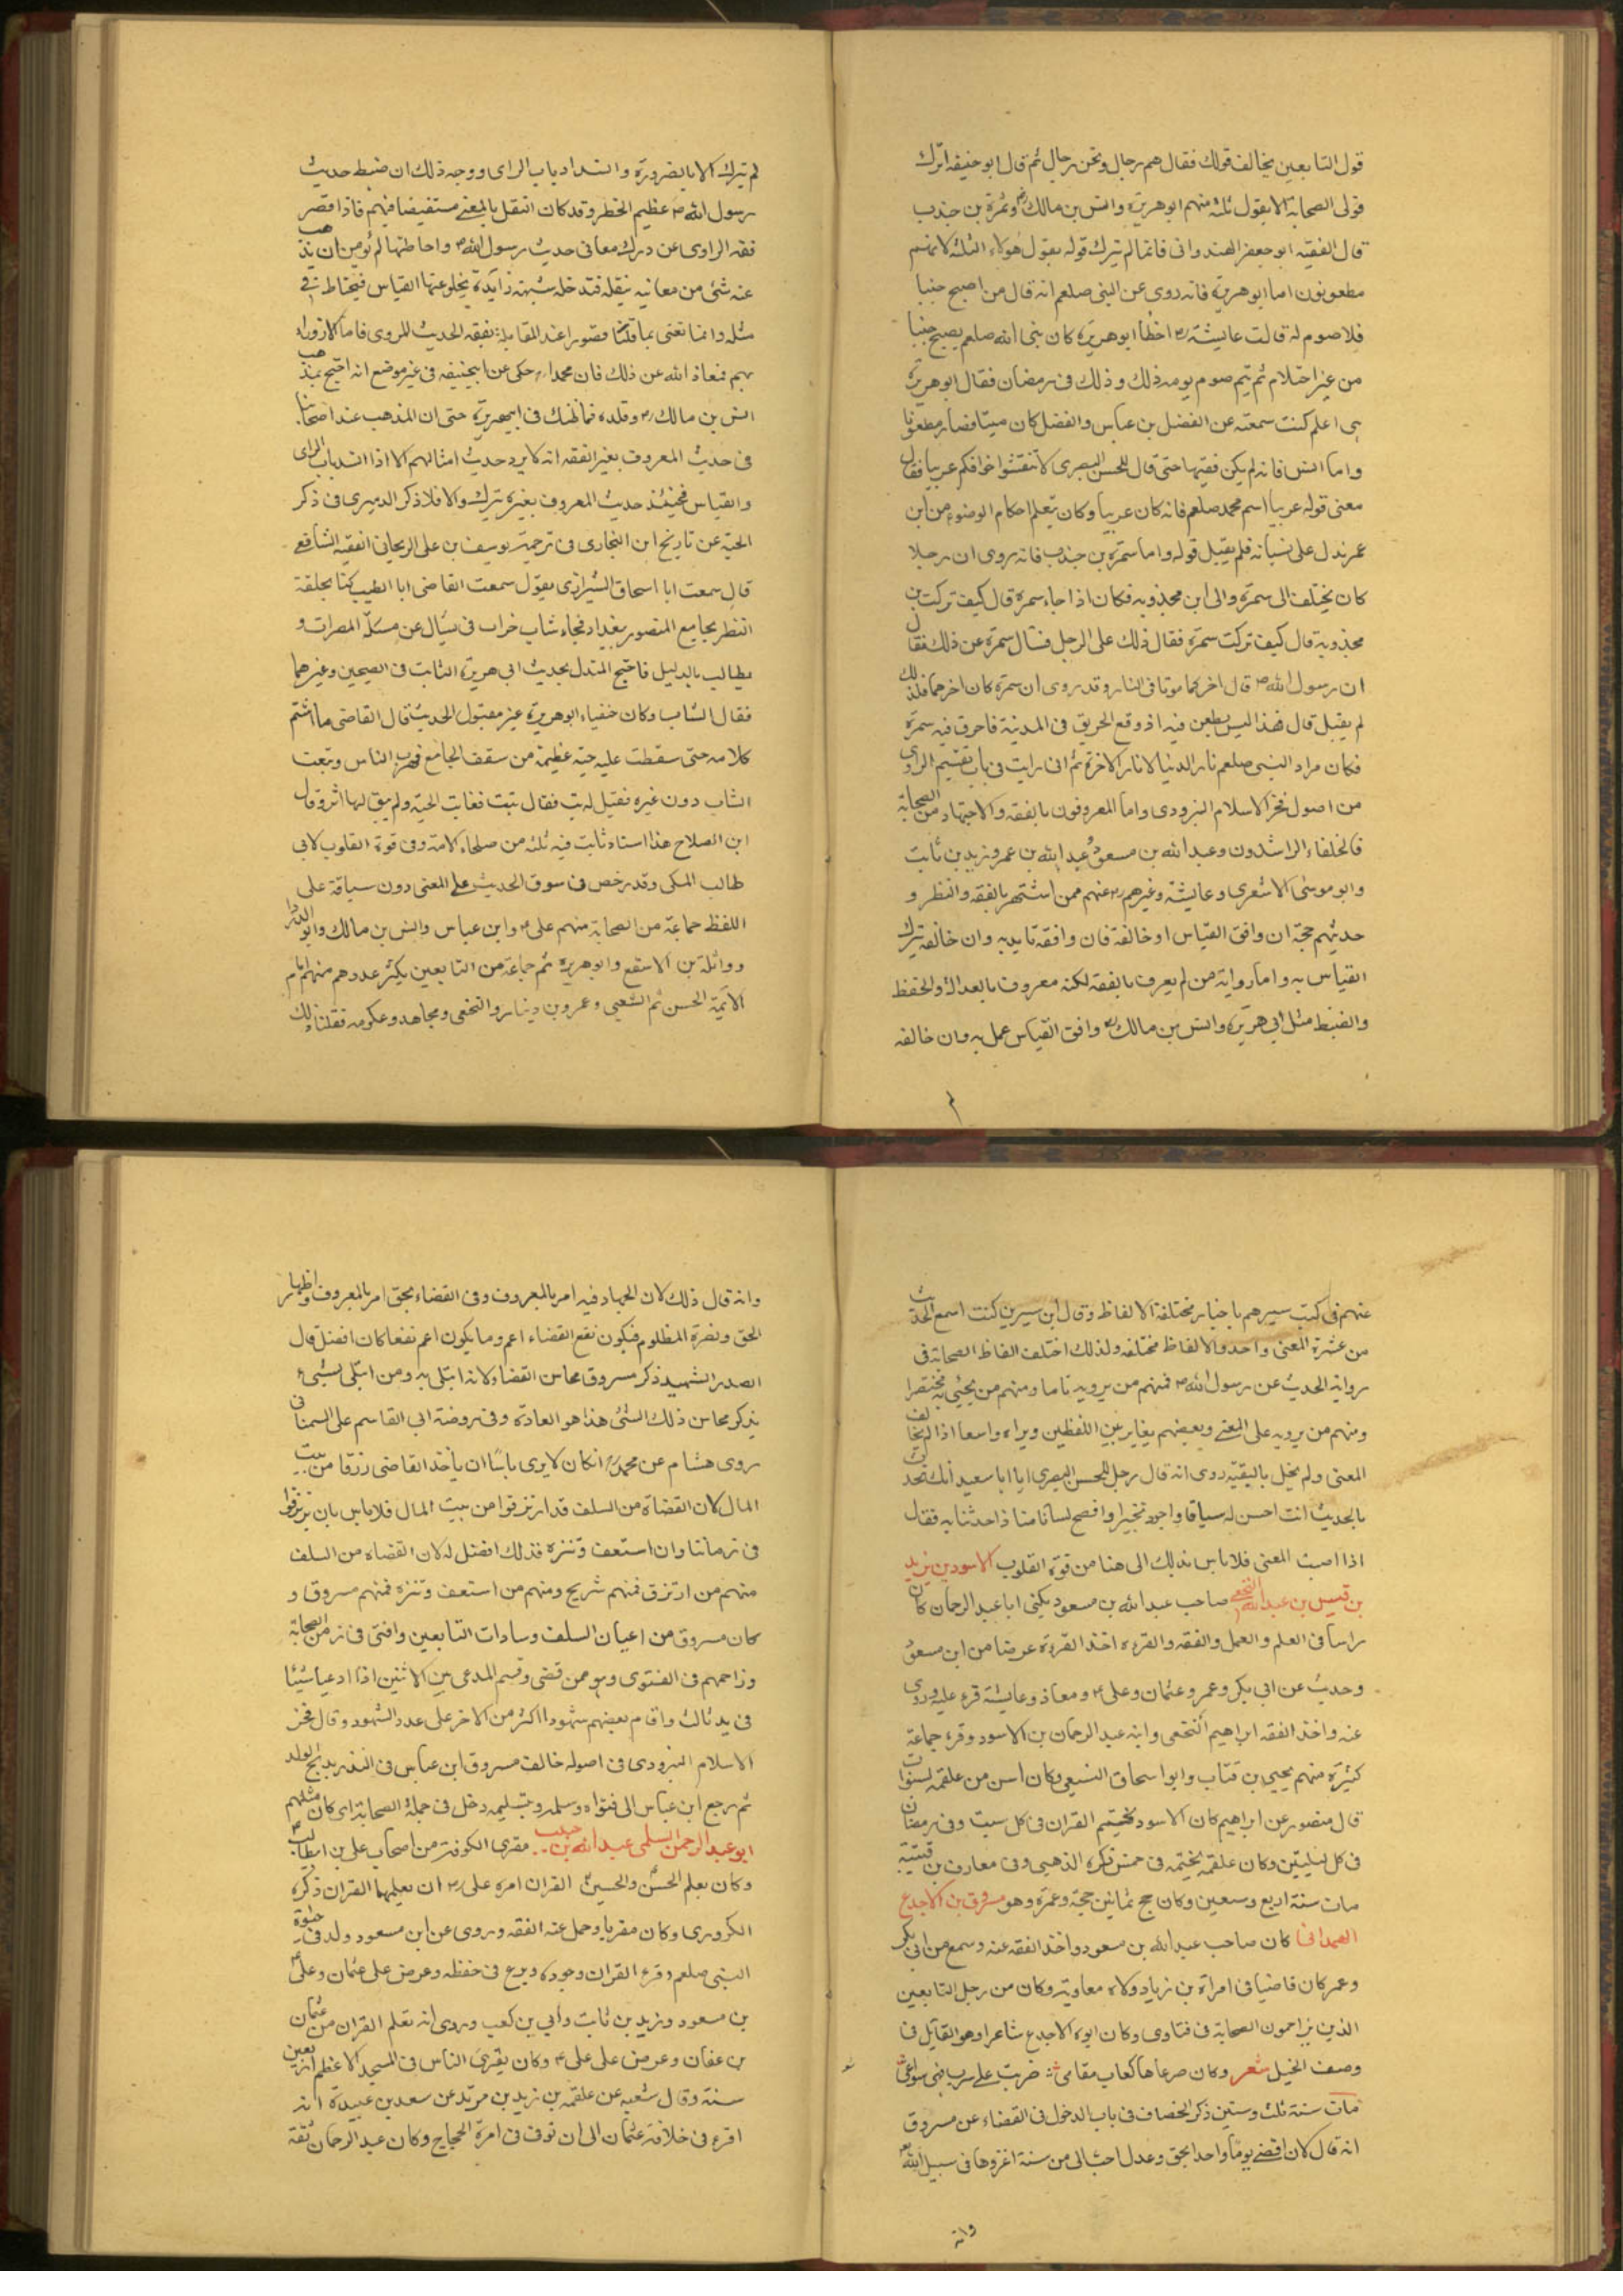 قول التابعين يخالف قولك فقال هم رجال ونحن رجال ثم قال ابو حنيفه اترك
قولى الصحابة الا بقول ثلثة منهم ابو هريرة وانس بن مالك وسمرة بن جندب
قال الفقيه ابو جعفر الهندوانى فانما لم يترك قوله بقول هولاء الثلثة لانهم
مطعونون اما ابو هريرة فانه روى عن النبى صلعم انه قال من اصبح جنبا
فلا صوم له قالت عايشة رض اخطأ ابو هريرة كان نبى الله صلعم يصبح جنبا
من غير احتلام ثم يتم صوم يومه ذلك وذلك فى رمضان فقال ابو هريرة
هى اعلم كنت سمعته عن الفضل بن عباس والفضل كان ميتا فصار مطعونا
واما انس فانه لم يكن فقيها حتى قال للحسن البصرى لا تنقشوا خواتمكم عربيا فقال
معنى قوله عربيا اسم محمد صلعم فانه كان عربيا وكان يتعلم احكام الوضوء من ابن
عمر ندل على نسيانه فلم يقبل قوله واما سمرة بن جندب فانه روى ان رجلا
كان يختلف الى سمرة والى ابن محذوبه فكان اذا جاء سمرة قال كيف تركت بن
محذوبه قال كيف تركت سمرة فقال ذلك على الرجل فسأل سمرة عن ذلك فقال
ان رسول الله ص قال اخركما موتا فى النار وقد روى ان سمرة كان اخرهما فلذلك
لم يقبل قال فهذا ليس بطعن فيه اذ وقع الحريق فى المدينة فاحرق فيه سمرة
فكان مراد النبى صلعم نار الدنيا لا نار الاخرة ثم انى رايت فى باب تقسيم الراوى
من اصول فخر الاسلام البزودى واما المعروفون بالفقه والاجتهاد من الصحابة
فالخلفاء الراشدون وعبد الله بن مسعود وعبد الله بن عمر وزيد بن ثابت
وابو موسى الاشعرى وعايشة وغيرهم رض عنهم ممن اشتهر بالفقه والنظر و
حديثهم حجة ان وافق القياس او خالفه فان وافقه تايد به وان خالفه ترك
القياس به واما رواية من لم يعرف بالفقه لكنه معروف بالعدالة والحفظ
والضبط مثل ابى هريرة وانس بن مالك رض وافق القياس عمل به وان خالفه
لم يترك الا بالضرورة وانسداد باب الراى ووجه ذلك ان ضبط حديث
رسول الله ص عظيم الخطر وقد كان النقل بالمعنى مستفيضا فيهم فاذا قصر
فقه الراوى عن درك معانى حديث رسول الله ص واحاطتها لم يؤمن ان يذهب
عنه شئ من معانيه بنقله فتدخله شبهة زايدة يخلو عنها القياس فيحتاط فى
مثله وانما نعنى بما قلنا قصورا عند المقابلة بفقه الحديث للمروى فاما الازوراء
بهم فمعاذ الله عن ذلك فان محمدا ره حكى عن ابيحنيفه فى غير موضع انه احتج بمذهب
انس بن مالك رض وقلده فما ظنك فى ابيهريرة حتى ان المذهب عند اصحابنا
فى حديث المعروف بغير الفقه انه لا يرد حديث امثالهم الا اذا انسد باب الراى
والقياس فحينئذ حديث المعروف بغيره يترك والا فلا ذكر الدميرى فى ذكر
الحية عن تاريخ ابن النجارى فى ترجمة يوسف بن على الريحانى الفقيه الشافعى
قال سمعت ابا اسحاق الشيرازى يقول سمعت القاضى ابا الطيب كنا بحلقة
النظر بجامع المنصور ببغداد فجاء شاب خراب فى يسأل عن مسئلة المصرات و
يطالب بالدليل فاحتج المتدل بحديث ابى هريرة الثابت فى الصحيحين وغيرهما
فقال الشاب وكان خفياء ابو هريرة غير مقبول الحديث قال القاضى ما اشتم
كلامه حتى سقطت عليه حية عظيمة من سقف الجامع فهرب الناس وتبعت
الشاب دون غيره فقيل له تب فقال تبت فغابت الحية ولم يبق لها اثر وقال
ابن الصلاح هذا اسناد ثابت فيه ثلثة من صلحاء الامة وفى قوة القلوب لابى
طالب المكى وقد رخص فى سوق الحديث على المعنى دون سياقة على
اللفظ جماعة من الصحابة منهم على ع وابن عباس وانس بن مالك وابو الدردا
وواثلة بن الاسقع وابو هريرة ثم جماعة من التابعين يكثر عددهم منهم امام
الائمة الحسن ثم الشعبى وعمرو بن دينار والنخعى ومجاهد وعكرمه فقلنا ذلك
عنهم فى كتب سيرهم باخبار مختلفة الالفاظ وقال ابن سيرين كنت اسمع الحديث
من عشرة المعنى واحد والالفاظ مختلفه ولذلك اختلف الفاظ الصحابة فى
رواية الحديث عن رسول الله ص فمنهم من يرويه تاما ومنهم من يجئ به مختصرا
ومنهم من يرويه على المعنى وبعضهم يغاير بين اللفظين ويراه واسعا اذا لم يخالف
المعنى ولم يخل بالبقية روى انه قال رجل للحسن البصرى ايا ابا سعيد انك تحدث
بالحديث انت احسن له سياقا واجود تحبيرا وافصح لسانا منا اذا حدثنا به فقال
اذا اصبت المعنى فلا باس بذلك الى هنا من قوة القلوب الاسود بن يزيد
بن قيس بن عبد الله النخعى صاحب عبد الله بن مسعود يكنى ابا عبد الرحمان كان
راسا فى العلم والعمل والفقه والقرءه اخذ القرءة عرضا من ابن مسعود
وحديث عن ابى بكر وعمر وعثمان وعلى ع ومعاذ وعايشة قرء عليه وروى
عنه واخذ الفقه ابراهيم النخعى وابنه عبد الرحمان بن الاسود وقرء جماعة
كثيرة منهم يحيى بن قتاب وابو اسحاق السبيعى وكان اسن من علقمه لسنوات
قال منصور عن ابراهيم كان الاسود يختم القران فى كل سبت وفى رمضان
فى كل ليلتين وكان علقمه يختمه فى خمس ذكره الذهبى وفى معارف بن قتيبة
مات سنة اربع وسبعين وكان حج ثمانين حجة وعمرة وهو مسروق بن الاجدع
الهمدانى كان صاحب عبد الله بن مسعود واخذ الفقه عنه وسمع من ابى بكر
وعمر كان قاضيا فى امراة بن زياد ولاه معاوية وكان من رجل التابعين
الذين يزاحمون الصحابة فى فتاوى وكان ابوه الاجدع شاعرا وهو القائل فى
وصف الخيل شعر وكان صرعاها كعاب مقامى ضربت على سرب فهى سواعى
مات سنة ثلث وستين ذكر الخصاف فى باب الدخول فى القضاء عن مسروق
انه قال لان اقضى يوما واحدا بحق وعدل احب الى من سنة اغزوها فى سبيل الله
وانه
وانه قال ذلك لان الجهاد فيه امر بالمعروف وفى القضاء بحق امر بالمعروف واظهار
الحق ونصرة المظلوم فيكون نفع القضاء اعم وما يكون اعم نفعا كان افضل قال
الصدر الشهيد ذكر مسروق محاسن القضاء لانه ابتلى به ومن ابتلى بشىء
يذكر محاسن ذلك الشئ هذا هو العادة وفى روضة ابى القاسم على السمنانى
روى هشام عن محمد ره انكان لا يرى باسا ان ياخذ القاضى رزقا من بيت
المال لان القضاة من السلف قد ارتزقوا من بيت المال فلا باس بان يرتزقوا
فى زماننا وان استعف وتنزه فذلك افضل له لان القضاة من السلف
منهم من ارتزق فمنهم شريح ومنهم من استعف وتنزه فمنهم مسروق و
كان مسروق من اعيان السلف وسادات التابعين وافتى فى زمن الصحابة
وزاحمهم فى الفتوى وهو ممن قضى وقسم المدعى بين الاثنين اذا ادعيا شيئا
فى يد ثالث واقام بعضهم شهودا اكثر من الاخر على عدد الشهود وقال فخر
الاسلام البزودى فى اصوله خالف مسروق ابن عباس فى النذر بذبح الولد
ثم رجع ابن عباس الى فتواه وسلمه وبتسليمه دخل فى جملة الصحابة اى كان مثلهم
ابو عبد الرحمن السلمى عبد الله بن حبيب مقرى الكوفة من اصحاب على بن ابيطالب ع
وكان يعلم الحسن والحسين القران امره على رض ان يعلمهما القران ذكره
الكرورى وكان مقريا وحمل عنه الفقه وروى عن ابن مسعود ولد فى حيوة
النبى صلعم وقرء القران وجوده وبرع فى حفظه وعرض على عثمان وعلى ع
بن مسعود وزيد بن ثابت وابي بن كعب وروى انه تعلم القران من عثمان
بن عفان وعرض على على ع وكان يقرئ الناس فى المسجد الاعظم اربعين
سنة وقال شعبه عن علقمه بن زيد بن مرثد عن سعد بن عبيدة انه
اقرء فى خلافة عثمان الى ان توفى فى امرة الحجاج وكان عبد الرحمان ثقة